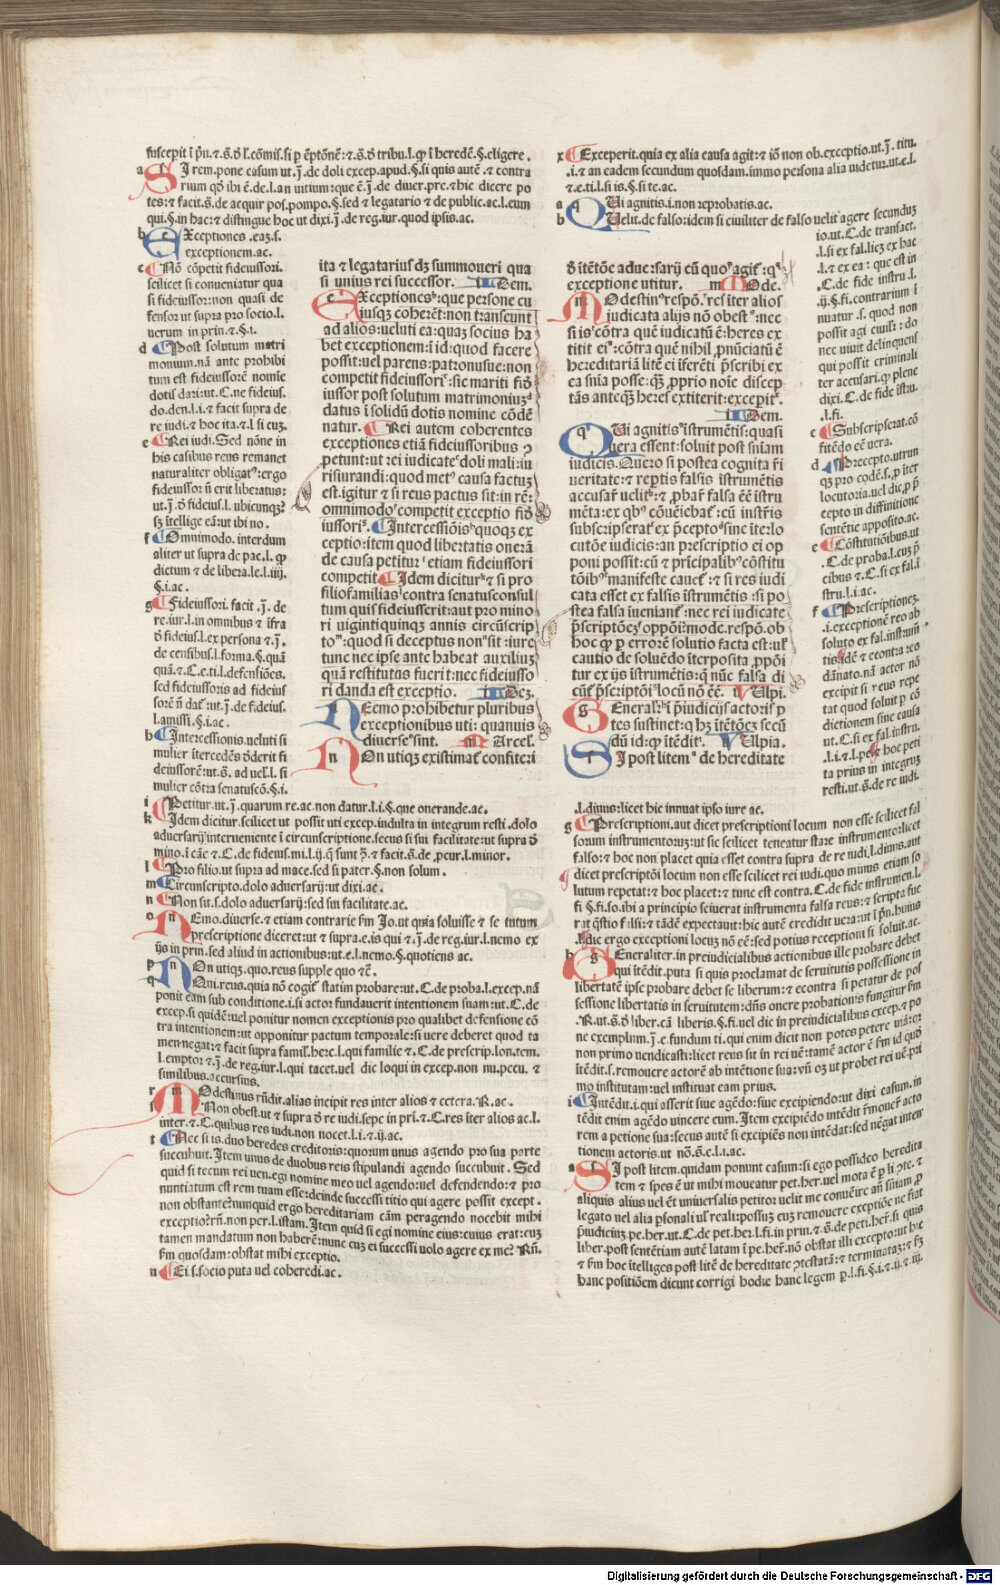 suscepit ī p̄n.⁊.s̄.ō l̄.cōmis.si p ēptōnē:⁊.s̄.ō tribu.l.ꝙ ī heredē.§.eligere.
a SI rem.pone casum ut.j̄.de doli excep.apud.§.si quis autē.⁊ contra
rium qō ibi ē.de.l.an uitium:que ē.j̄.de diuer.pre.⁊hic dicere po
tes:⁊ facit.s̄.de acquir pos.pompo.§.sed ⁊ legatario ⁊ de public.ac.l.cum
qui.§.in hac:⁊ distingue hoc ut dixi.j̄.de reg.iur.quod ipsis.ac.
b EXceptiones .eaꝝ.s.
exceptionem.ac.
c Nō cōpetit fideiussori.
scilicet si conueniatur qua
si fideiussor:non quasi de
fensor ut supra pro socio.l.
uerum in prin.⁊.§.i.
d Post solutum matri
monium.nā ante prohibi
tum est fideiussorē nomīe
dotis dari:ut.C.ne fideius.
do.den.l.i.⁊ facit supra de
re iudi.⁊ hoc ita.⁊ l si cuꝫ.
e Rei iudi.Sed nōne in
his casibus reus remanet
naturaliter obligatꝰ:ergo
fideiussor ñ erit liberatus:
ut.j̄.ō fideius.l.ubicunqꝫ?
sꝫ ītellige eā:ut ibi no.
f Omnimodo. interdum
aliter ut supra de pac.l.ꝙ
dictum ⁊ de libera.le.l.iiij.
§.i.ac.
g Fideiussori. facit.j̄.de
re.iur.l.in omnibus ⁊ īfra
ō fideius.l.ex persona ⁊.j̄.
de censibus.l.forma.§.quā
quā.⁊.C.e.ti.l.defensiōes.
sed fideiussoris ad fideius
sorē ñ dat:ut.j̄.de fideius.
l.amissi.§.i.ac.
h Intercessionis.ueluti si
mulier ītercedēs ōderit fi
deiussorē:ut.s̄.ad uel.l.si
mulier cōtra senatuscō.§.i.
ita ⁊ legatarius dꝫ summoueri qua
si unius rei successor. Idem.
EXceptionesᵇ:que persone cu
iusqꝫ coherēt:non transeunt
ad alios:ueluti ea:quaꝫ socius ha
bet exceptionem:ī id:quod facere
possit:uel parens:patronusue:non
competit fideiussoriᶜ:sic mariti fiō
iussor post solutum matrimoniuꝫᵈ
datus ī solidū dotis nomine cōdē
natur. Rei autem coherentes
exceptiones etiā fideiussoribus ꝯ
petunt:ut rei iudicateᵉ doli mali:iu
risiurandi:quod metꝰ causa factuꝫ
est.igitur ⁊ si reus pactus sit:in rē:
omnimodoᶠ competit exceptio fiō
iussoriᵍ. Intercessiōisʰ quoqꝫ ex
ceptio:item quod libertatis onerā
de causa petiturⁱ etiam fideiussori
competit Idem diciturᵏ ⁊ si pro
filiofamiliasˡ contra senatusconsul
tum quis fideiusserit:aut pro mino
ri uigintiquinqꝫ annis circūscrip
toᵐ:quod si deceptus nonⁿ sit :iure
tunc nec ipse ante habeat auxiliuꝫ
quā restitutus fuerit:nec fideiusso
ri danda est exceptio. Ideꝫ.
NEmo prohibetur pluribus
exceptionibus uti: quanuis
diuerseᵒ sint. Marcel.
NOn utiqꝫ existimat confiteri
i Petitur.ut.j̄.quarum re.ac.non datur.l.i.§.que onerande.ac.
k Idem dicitur.scilicet ut possit uti excep.indulta in integrum resti.dolo
aduersarij interueniente ī circunscriptione.secus si sui facilitate:ut supra ō
mino.ī cāe ⁊.C.de fideius.mi.l.ij.q̄ sunt ɔ̄.⁊ facit.s̄.de ,pcur.l.minor.
l Pro filio.ut supra ad mace.sed si pater.§.non solum.
m Circunscripto.dolo aduersarij:ut dixi.ac.
n Non sit.s.dolo aduersarij:sed sui facilitate.ac.
o NEmo.diuerse.⁊ etiam contrarie fm Jo.ut quia soluisse ⁊ se tutum
prescriptione diceret:ut ⁊ supra.e.is qui ⁊.j̄.de reg.iur.l.nemo ex
ijs in prin.sed aliud in actionibus:ut.e.l.nemo.§.quotiens ac.
p NOn utiqꝫ.quo.reus supple quo ⁊ē.
q Qui.reus.quia nō cogit̄ statim probare:ut.C.de proba.l.excep.nā
ponit eam sub conditione.i.si actor fundauerit intentionem suam:ut.C.de
excep.si quidē:uel ponitur nomen exceptionis pro qualibet defensione cō
tra intentionem:ut opponitur pactum temporale:si uere deberet quod ta
men negat:⁊ facit supra famil̄.herc.l.qui familie ⁊.C.de prescrip.lon.tem.
l.emptor ⁊.j̄.de reg.iur.l.qui tacet.uel dic loqui in excep.non nu.pecu. ⁊
similibus.accursius.
r MOdestinus rn̄dit.alias incipit res inter alios ⁊ cetera.R.ac.
s Non obest.ut ⁊ supra ō re iudi.sepe in pri.⁊.C.res īter alios ac.l.
inter.⁊.C.quibus res iudi.non nocet.l.i.⁊.ij.ac.
t Nec si is.duo heredes creditoris:quorum unus agendo pro sua parte
succubuit.Item unus de duobus reis stipulandi agendo succubuit. Sed
quid si tecum rei uen.egi nomine meo uel agendo:uel defendendo:⁊ pro
nuntiatum est rem tuam esse:deinde successi titio qui agere possit except.
non obstante?nunquid ergo hereditariam cām peragendo nocebit mihi
exceptio?rn̄.non per.l.istam.Item quid si egi nomine eius:cuius erat:cuꝫ
tamen mandatum non haberē:nunc cuꝫ ei successi uolo agere ex me? Rn̄.
fm quosdam:obstat mihi exceptio.
u Ei.s.socio puta uel coheredi.ac.
x Exceperit.quia ex alia causa agit:⁊ iō non ob.exceptio.ut.j̄. titu.
.i.⁊ an eadem secundum quosdam.immo persona alia uidetur.ut.e.l.
⁊.e.ti.l.si is.§.si te.ac.
a QUi agnitis.i.non reprobatis.ac.
b Uelit.de falso:idem si ciuiliter de falso uelit agere secunduꝫ
io.ut.C.de transact.
.l.si ex fal.licꝫ ex hac
.l.⁊ ex ea: que est in
.C.de fide instru.l.
.ij.§.fi.contrarium ī
nuatur .s. quod non
possit agi ciuilɼ: do
nec uiuit delinquens
qui possit criminali
ter accusari.ꝙ plene
dixi.C.de fide īstru.
.l.fi.
c Subscripserat.cō
fitēdo eē uera.
d Precepto.utrun
qꝫ pro codē.s.ꝓ iter
locutoria.uel dic.ꝓ p̄
cepto in diffinitione
sentētie apposito.ac.
e Cōstitutiōibus.ut
.C.de proba.l.cuꝫ p̄
cibus ⁊.C.si ex fal.ī
stru.l.i.ac.
f Prescriptioneꝫ.
.i.exceptionē reo ab
soluto ex fal.instrum̄
tis:idē ⁊ econtra reo
dānato.nā actor nō
excipit si reus repe
tat quod soluit p cō
dictionem sine causa
ut.C.si ex fal.instru.
.l.i.⁊.l.pe.⁊ hoc peti
ta prius in integruꝫ
resti.ut.s̄.de re iudi.
ō ītētōe aduersarij cū quoˣ agit̄ :qᵃ
exceptione utitur. Mode.
MOdestinꝰʳrespō.ˢres īter alios
iudicata alijs nō obestᵗ:nec
si isᵗcōtra quē iudicatū ē:heres ex
titit eiᵘ:cōtra quē nihil ,pnūciatū ē
hereditariā litē ei īferēti p̄scribi ex
ea sn̄ia posse:qꝫ ,pprio noīe discep
tās anteqꝫ heres extiterit:exceperitˣ.
Idem.
QUi agnitisᵃīstrumētis:quasi
uera essent:soluit post sn̄iam
iudicis.Quero si postea cognita fi
ueritate:⁊ reptis falsis īstrumētis
accusaꝶ uelitᵇ:⁊ ,pbaꝶ falsa eē īstru
mēta:ex qbꝰ cōueīebat̄:cū īstr̄is
subscripseratᶜ ex p̄ceptoᵈsine īterlo
cutōe iudicis:an prescriptio ei op
poni possit:cū ⁊ pricipalibꝰ cōstitu
tōibꝰᵉmanifeste cauet̄:⁊ si res iudi
cata esset ex falsis īstrumētis :si po
stea falsa īueniant̄:nec rei iudicate
p̄scriptōeꝫᶠ oppōi:mode.respō.ob
hoc ꝙ p errorē solutio facta est:uł
cautio de soluēdo īterposita ,ppōi
tur ex ijs īstrumētis:q̄ nūc falsa di
cūt̄ p̄scriptōiᵍ locū nō eē. Ulpi.
GEneralɼʰ ī p̄iudicijs actoris p
tes sustinet:q hꝫ ītētōeꝫ secū
dū id:ꝙ ītēditⁱ. Ulpia.
SI post litemᵃ de hereditate
.l.diuus:licet hic innuat ipso iure ac.
g Prescriptioni.aut dicet prescriptioni locum non esse scilicet fal
sorum instrumentorum:ut sic scilicet teneatur stare instrumento:licet
falso:⁊ hoc non placet quia esset contra supra de re iudi.l.diuus.aut
dicet prescriptōi locum non esse scilicet rei iudi.quo minus etiam so
lutum repetat:⁊ hoc placet:⁊ tunc est contra.C.de fide instrumen.l.
fi §.fi.so.ibi a principio sciuerat instrumenta falsa reus:⁊ scripta fue
rāt q̄stio filsi:⁊ tādē expectauit:hic autē credidit uera:ut ī p̄n.huius
.l.dic ergo exceptioni locuꝫ nō eē:sed potius receptioni si soluit.ac.
h GEneraliter.in preiudicialibus actionibus ille probare debet
qui ītēdit.puta si quis proclamat de seruitutis possessione in
libertatē ipse probare debet se liberum:⁊ econtra si petatur de pos
sessione libertatis in seruitutem:dn̄s onere probationis fungitur fm
.R.ut.s̄.ō liber.cā liberis.§.fi.uel dic in preiudicialibus excep.⁊ po
ne exemplum.j̄.e.fundum ti.qui enim dicit non potes petere uiā:er
non primo uendicasti:licet reus sit in rei uē:tamē actor ē fm id quō
ītēdit.s.remouere actorē ab ītētione sua:vn̄ oꝫ ut probet rei uē.pri
mo institutam:uel instituat eam prius.
i Intēdit.i.qui asserit siue agēdo:siue excipiendo:ut dixi casum.in
tēdit enim agēdo uincere eum.Item excipiēdo intēdit r̄mouer̄ acto
rem a petione sua:secus autē si excipiēs non intēdat:sed negat inten
tionem actoris.ut nō.s̄.e.l.i.ac.
a SI post litem.quidam ponunt casum:si ego possideo heredita
tem ⁊ spes ē ut mihi moueatur pet.her.uel mota ē p li ɔ̄te.⁊
aliquis alius uel ēt uniuersalis petitor uelit me conueīre añ sn̄iam ꝓ
legato uel alia ꝑsonali uł reali:possuꝫ euꝫ remouere exceptiōe ne fiat
p̄iudicium pe.her.ut.C.de pet.her.l.fi.in prin.⁊.s̄.de peti.her̄.si quis
liber.post sentētiam autē latam ī pe.her̄.nō obstat illi exceptio:ut hic
⁊ fm hoc ītelliges post litē de hereditate ɔtestatā:⁊ terminataꝫ:⁊ fꝫ
hanc positiōem dicunt corrigi hodie hanc legem p.l.fi.§.i.⁊.ij.⁊.iij.
Digitalisierung gefördert durch die Deutsche Forschungsgemeinschaft - DFG